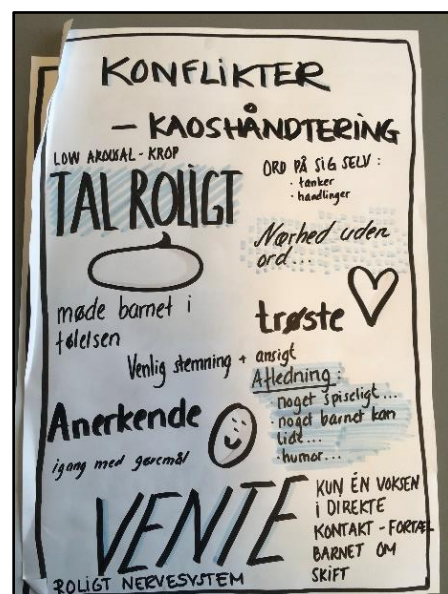 KONFLIKTER
– KAOSHÅNDTERING
LOW AROUSAL - KROP
TAL ROLIGT
ORD PÅ SIG SELV :
· tanker
· handlinger
Nærhed uden
ord...
møde barnet i
følelsen
trøste
Venlig stemning + ansigt
Afledning :
· noget spiseligt...
· noget barnet kan
lide...
· humor...
Anerkende
igang med gøremål
VENTE
ROLIGT NERVESYSTEM
KUN ÉN VOKSEN
I DIREKTE
KONTAKT - FORTÆL
BARNET OM
SKIFT